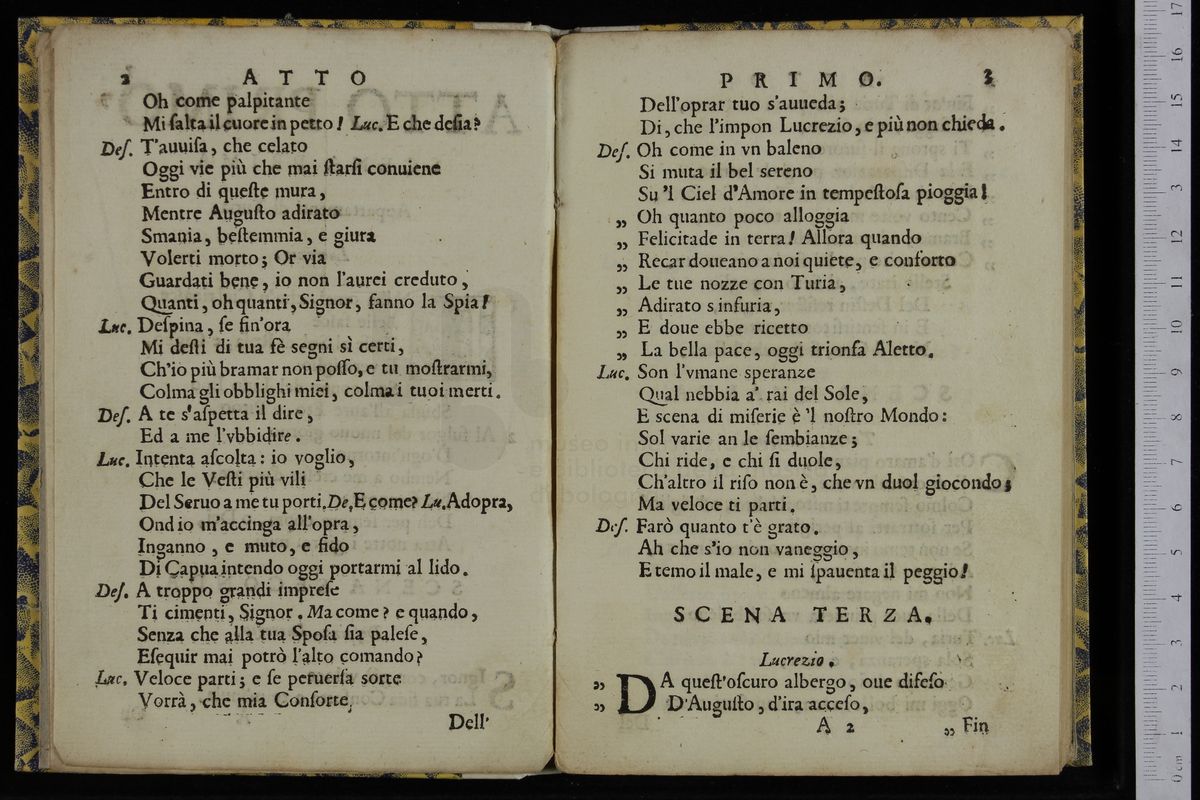 2 ATTO
Oh come palpitante
Mi ſalta il cuore in petto! Luc. E che deſia?
Deſ. T'auuiſa, che celato
Oggi vie più che mai ſtarſi conuiene
Entro di queſte mura,
Mentre Auguſto adirato
Smania, beſtemmia, e giura
Volerti morto; Or via
Guardati bene, io non l'aurei creduto,
Quanti, oh quanti, Signor, fanno la Spia!
Luc. Deſpina, ſe fin'ora
Mi deſti di tua fè segni sì certi,
Ch'io più bramar non poſſo, e tu moſtrarmi,
Colma gli obblighi miei, colma i tuoi merti.
Deſ. A te s'aſpetta il dire,
Ed a me l'vbbidire.
Luc. Intenta aſcolta: io voglio,
Che le Veſti più vili
Del Seruo a me tu porti. De. E come? Lu. Adopra,
Ond io m'accinga all'opra,
Inganno, e muto, e fido
Di Capua intendo oggi portarmi al lido.
Deſ. A troppo grandi impreſe
Ti cimenti, Signor. Ma come? e quando,
Senza che alla tua Spoſa ſia paleſe,
Eſequir mai potrò l'alto comando?
Luc. Veloce parti; e ſe peruerſa sorte
Vorrà, che mia Conſorte,
Dell'
PRIMO. 3
Dell'oprar tuo s'auueda;
Di, che l'impon Lucrezio, e più non chieda.
Deſ. Oh come in vn baleno
Si muta il bel sereno
Su 'l Ciel d'Amore in tempeſtoſa pioggia!
„ Oh quanto poco alloggia
„ Felicitade in terra! Allora quando
„ Recar doueano a noi quiete, e conforto
„ Le tue nozze con Turia,
„ Adirato s infuria,
„ E doue ebbe ricetto
„ La bella pace, oggi trionfa Aletto.
Luc. Son l'vmane speranze
Qual nebbia a' rai del Sole,
E scena di miſerie è 'l noſtro Mondo:
Sol varie an le ſembianze;
Chi ride, e chi ſi duole,
Ch'altro il riſo non è, che vn duol giocondo;
Ma veloce ti parti.
Deſ. Farò quanto t'è grato.
Ah che s'io non vaneggio,
E temo il male, e mi ſpauenta il peggio!
SCENA TERZA.
Lucrezio.
„ DA queſt'oſcuro albergo, oue difeſo
„ D'Auguſto, d'ira acceſo,
A 2 „ Fin